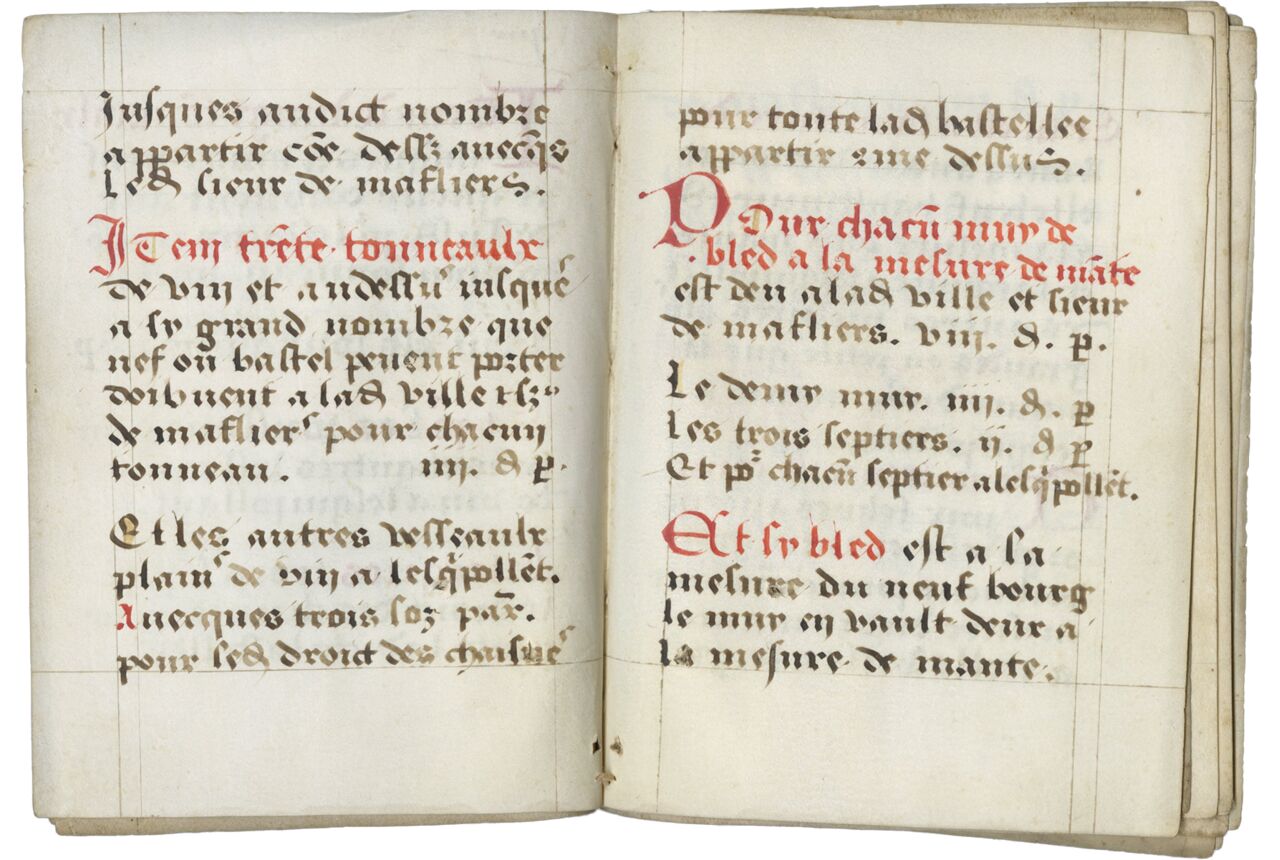 Jusques audict nombre
appartir cõe dessz auecq̃s
led sieur de mafliers.
ITem trẽte tonneaulx
de vin et audessus iusques
a sy grand nombre que
nef ou bastel peuent porter
doibuent a lad ville et sr
de mafliers pour chacun
tonneau. iiii. d p.
Et les autres vesseaulx
plains de vin a lesq̃pollẽt.
Auecques trois solz par.
pour led droict des chaisnes
pour toute lad bastellee
appartir 9me dessus.
POur chacũ muy de
bled a la mesure de mãte
est deu a lad ville et sieur
de mafliers. viii. d. p.
Le demy muy. iiii. d. p
Les trois septiers. ii. d p
Et por chacũ septier a lesq̃pollẽt.
Et sy bled est a la
mesure du neuf bourg
le muy en vault deux a
la mesure de mante.